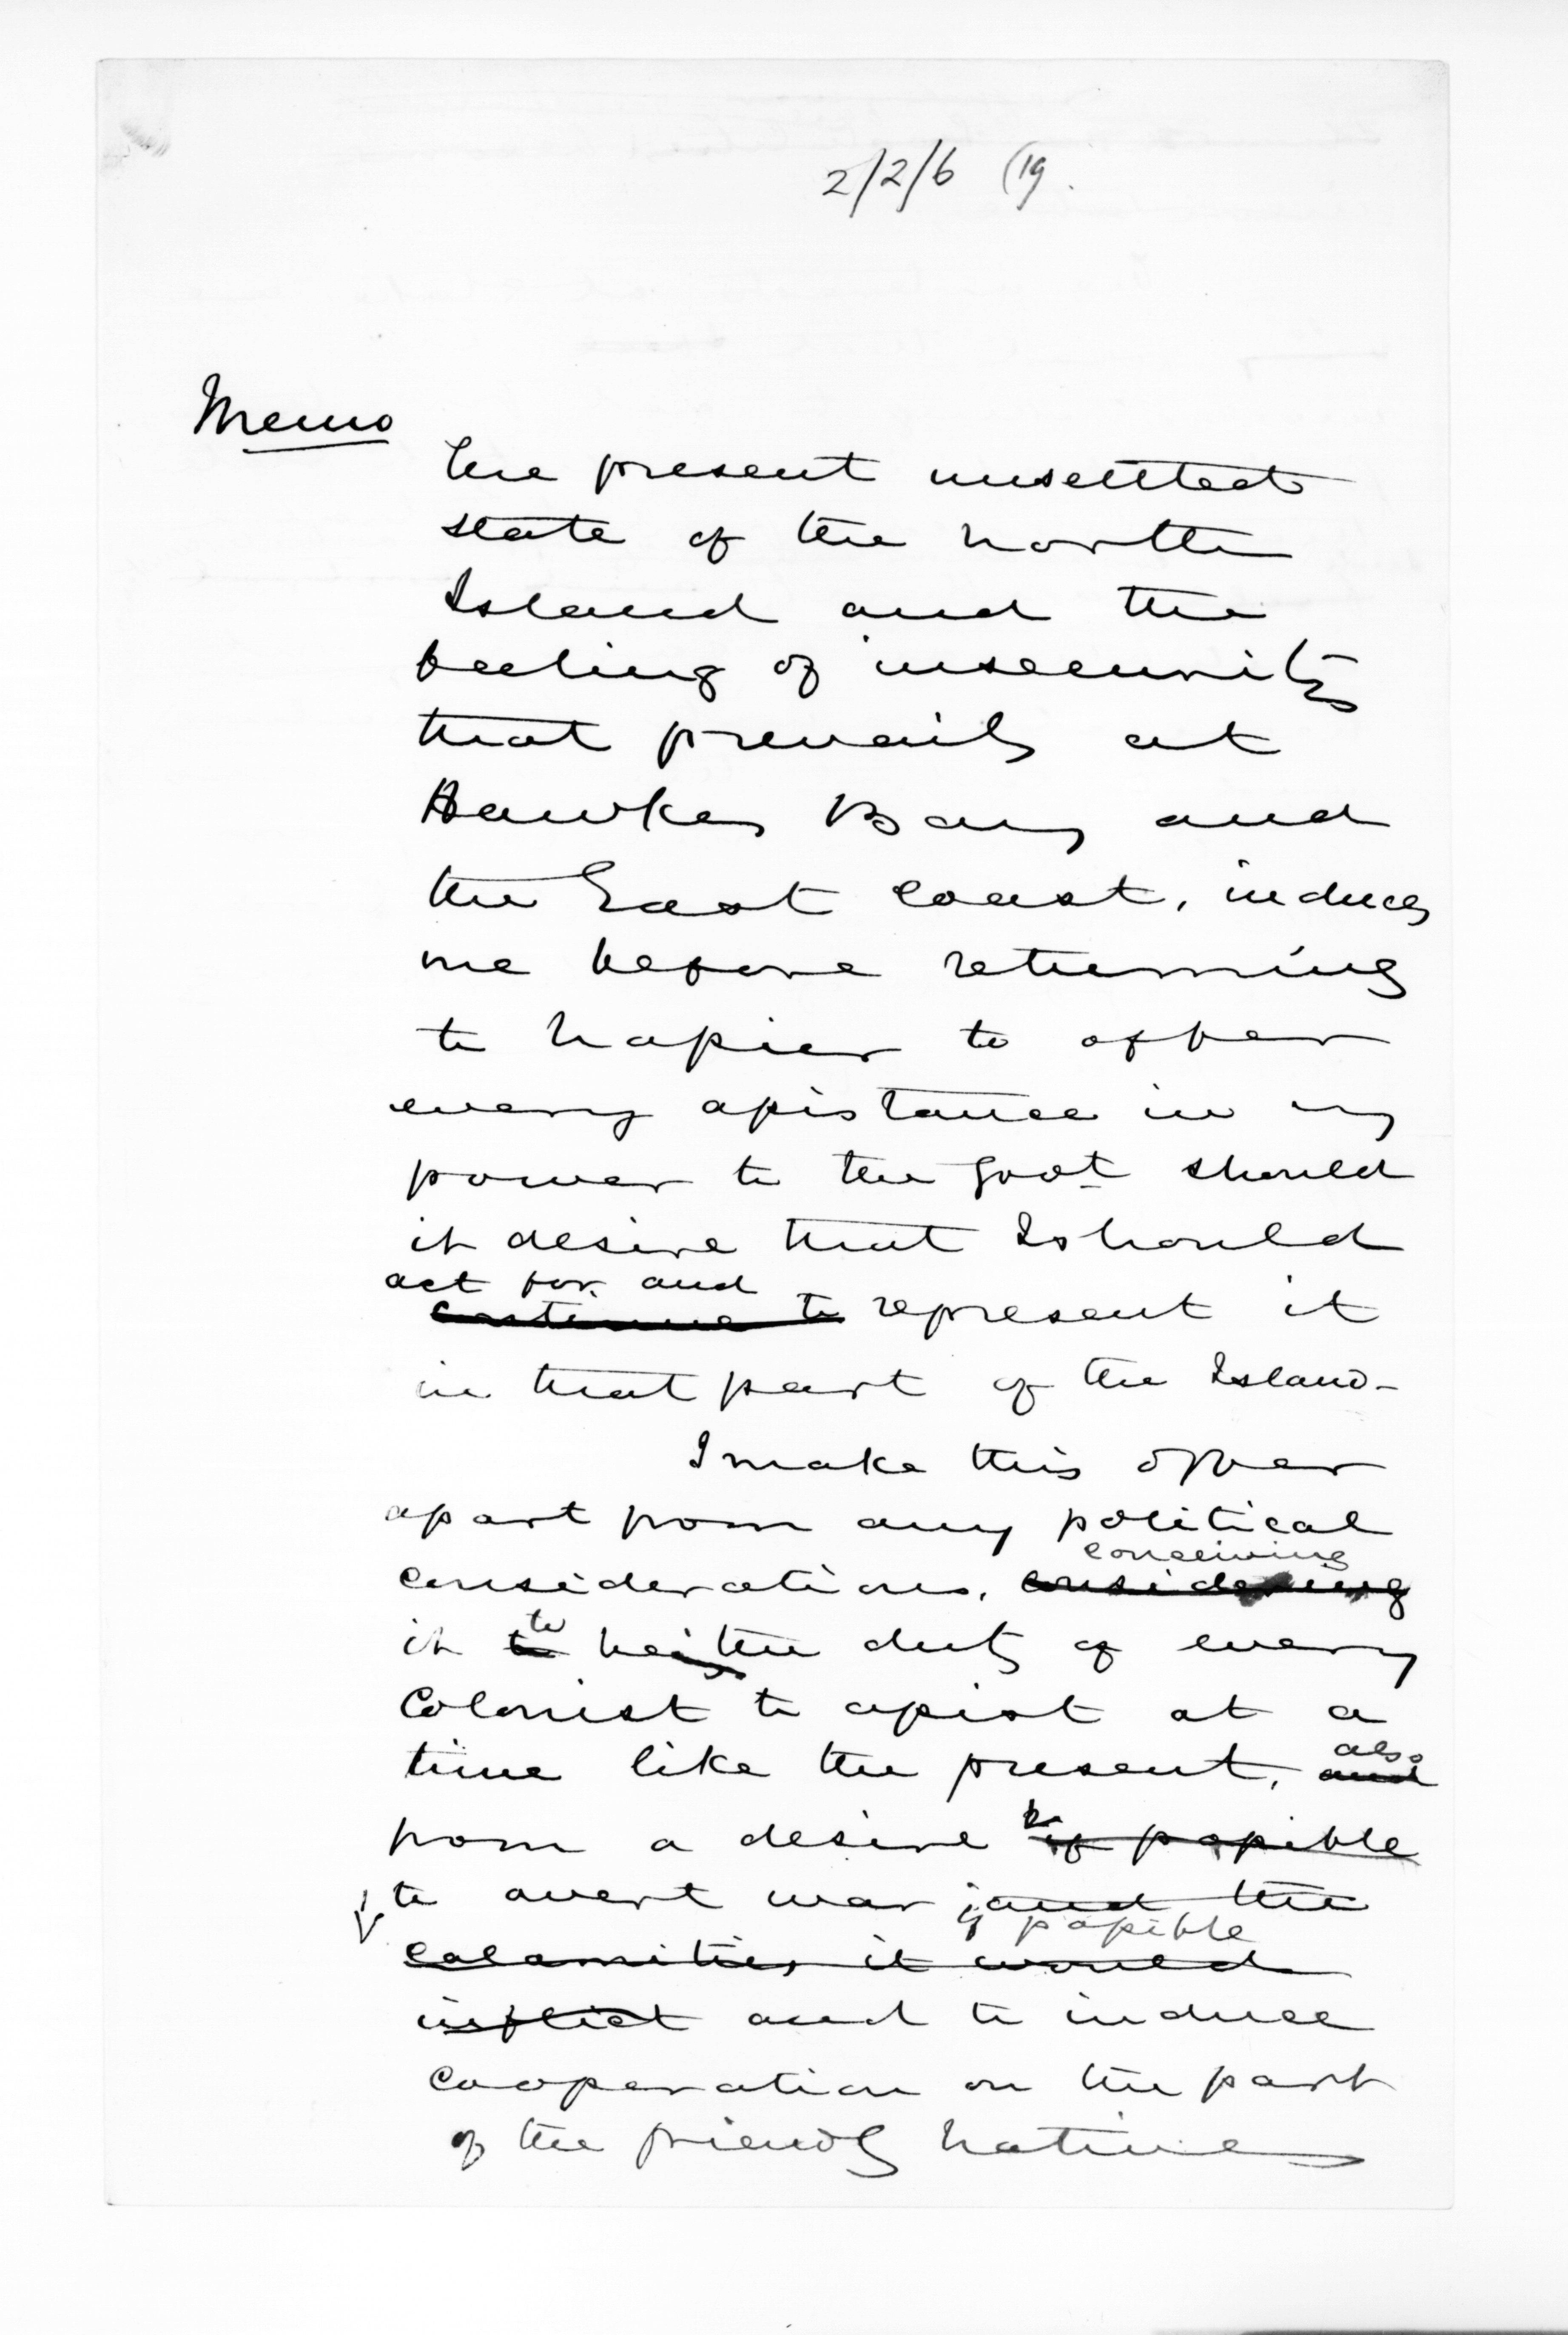 2/2/6 (19.
Memo
The present unsettled
state of the North
Island and the
feeling of insecurity
that prevails at
Hawkes Bay and
the East Coast, induces
me before returning
to Napier to offer
every assistance in my
power to the Govt should
it desire that I should
act for and
continue to represent it
in that part of the Island -
I make this offer
apart from any political
conceiving
considerations, considering
to
it to being the duty of every
Colonist to assist at a
also
time like the present, and
from a desire if possible
to avert war and the
if possible
calamities it would
inflict and to induce
cooperation on the part
of the friendly Natives